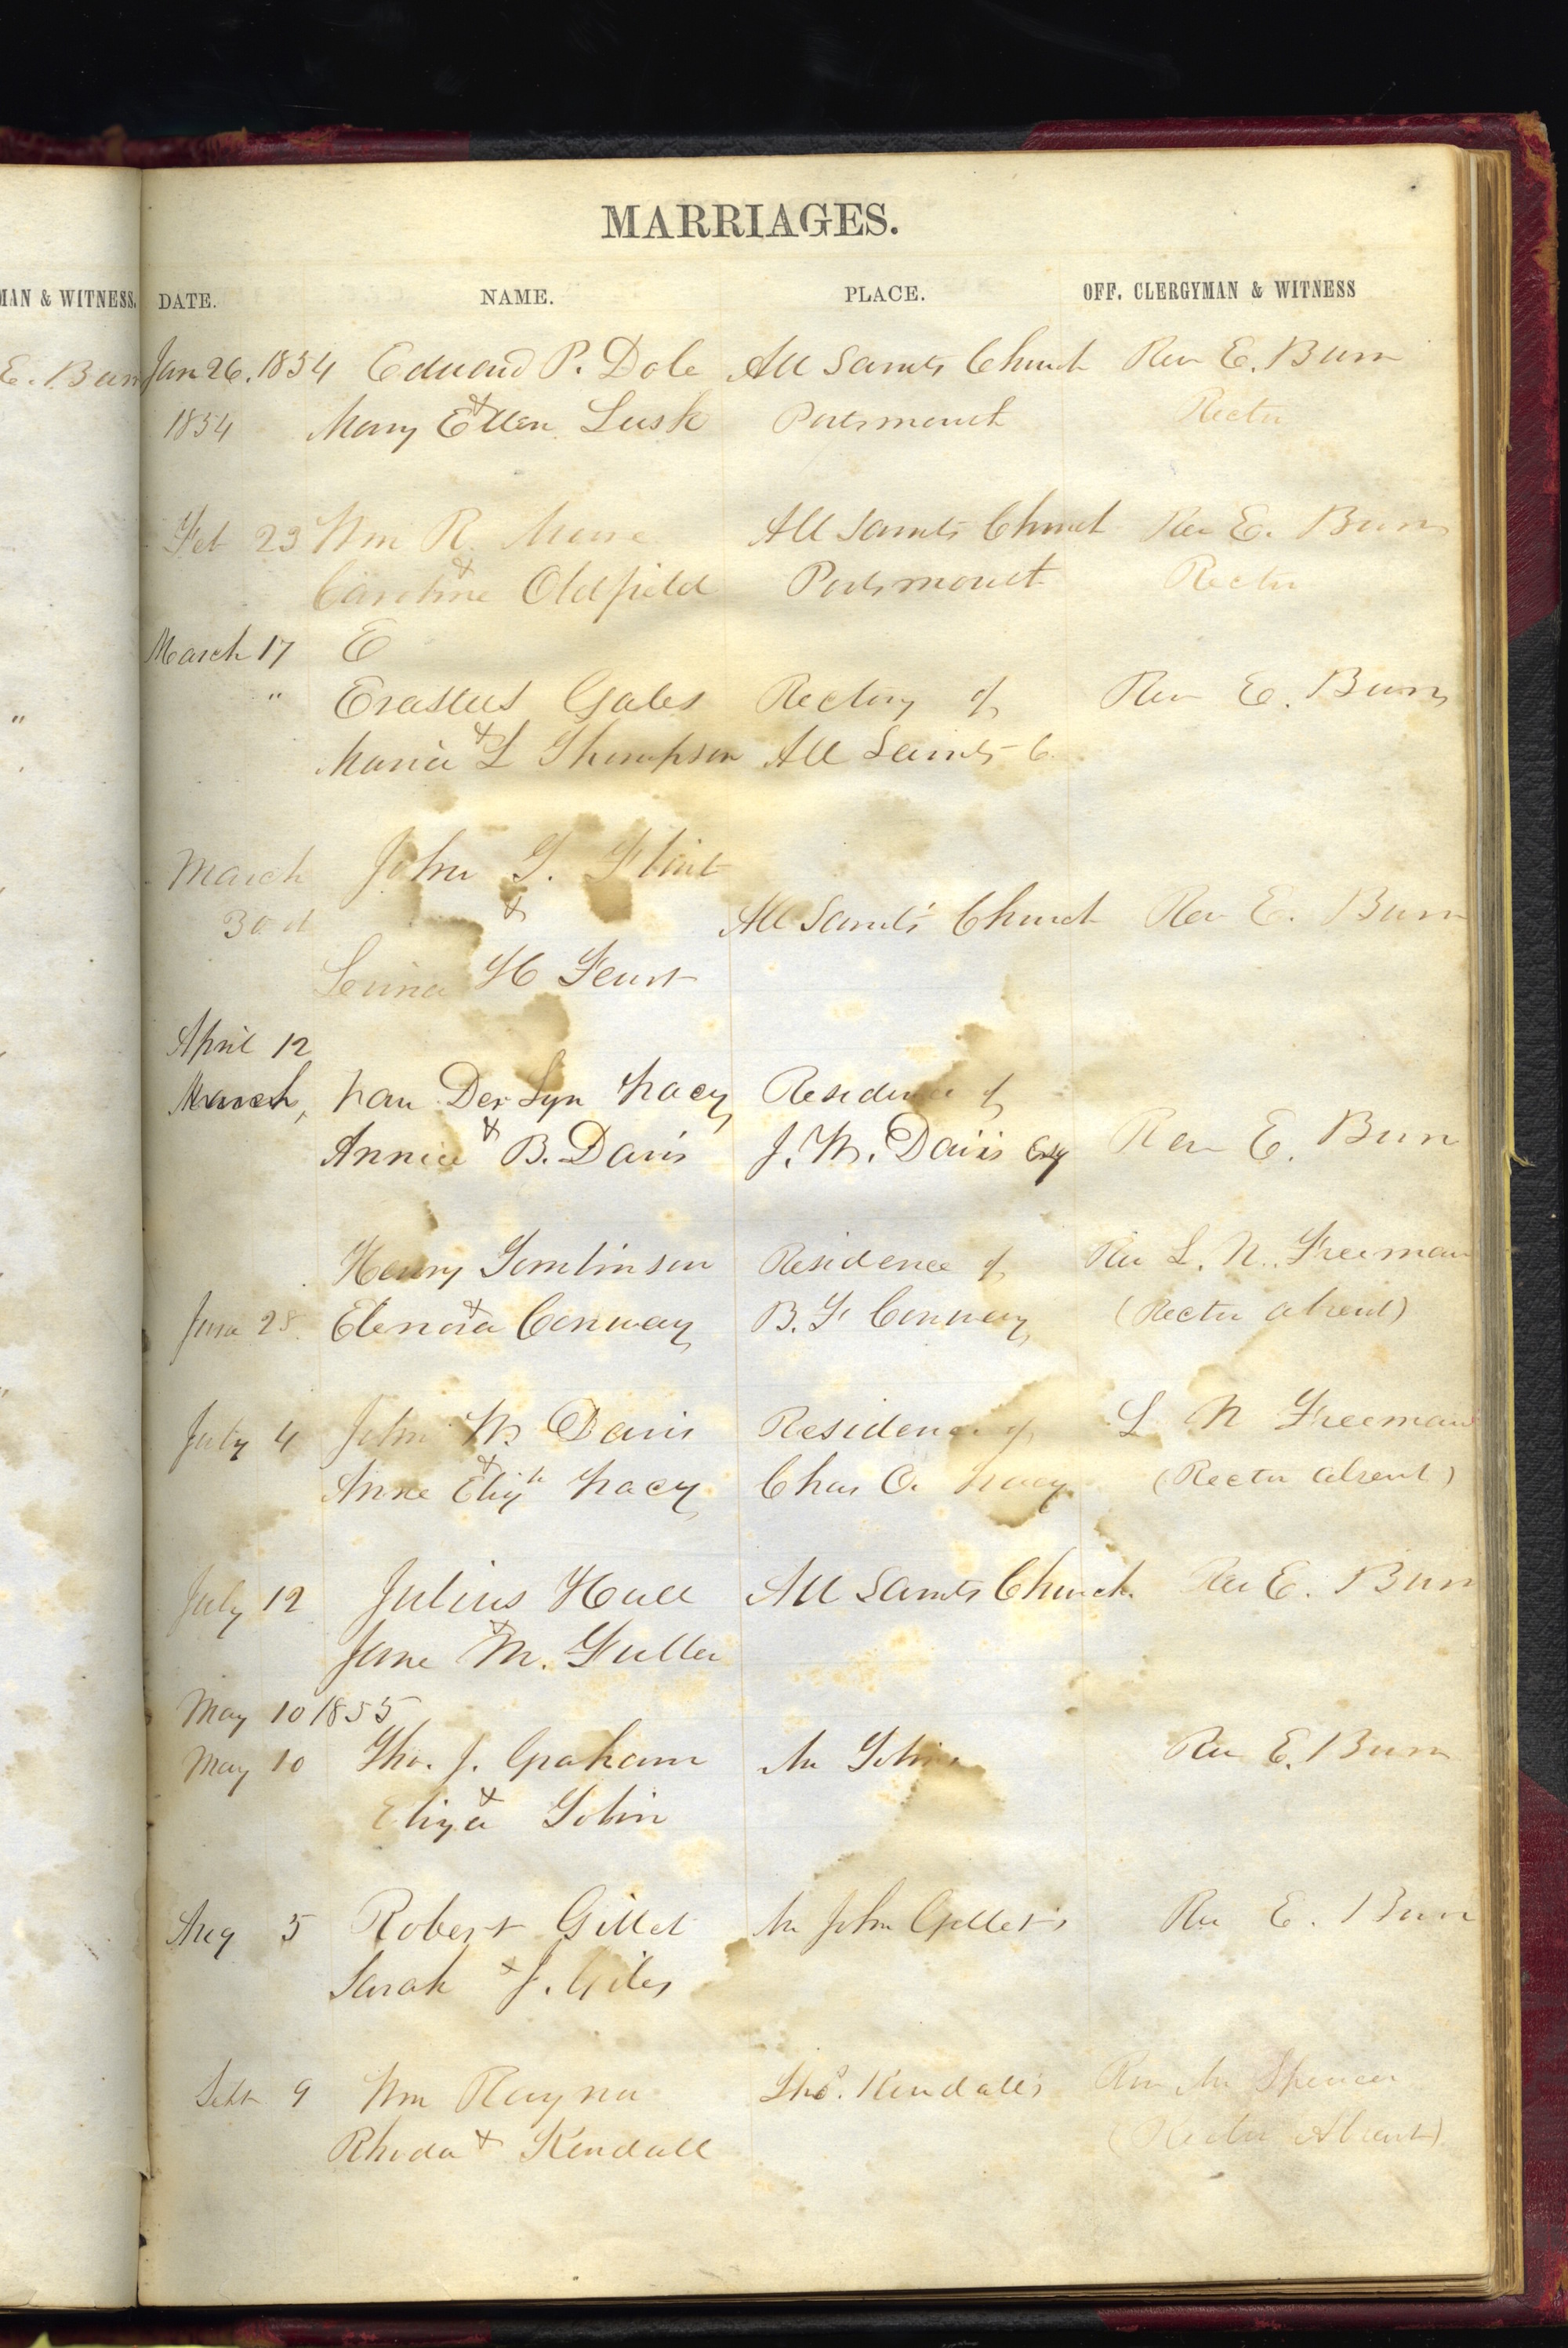 MAN & WITNESS.
E. Burr
MARRIAGES.
DATE. NAME. PLACE. OFF. CLERGYMAN & WITNESS
Jan 26. 1854 Edward P. Dole All Saints Church Rev E. Burr
&
1854 Mary Ellen Lusk Portsmouth Rector
Feb 23 Wm R. All Saints Church Rev E. Burr
&
Caroline Oldfield Portsmouth Rector
March 17 E
" Erastus Gates Rectory of Rev E. Burr
&
Maria L Thompson All Saints C.
March John T. Flint
30th & All Saints Church Rev E. Burr
H Feurt
April 12
March, Van Der Lyn Tracy Residence of
& Rev E. Burr
Annie B. Davis J. W. Davis Esq
Henry Tomlinson Residence of Rev L. N. Freeman
&
June 28. Elenora Conway B. F Conway (Rector absent)
July 4 John W. Davis Residence of L N Freeman
&
Anne Elizh Tracy Chas O. Tracy (Rector absent)
July 12 Julius Hall All Saints Church. Rev E. Burr
&
Jane M. Fuller
May 10 1855
May 10 Tho. J. Graham Mr Rev E. Burr
&
Eliza
Aug 5 Robert Gillet Mr John Gillet's Rev E. Burr
Sarah & J. Giles
Sept 9 Wm Thos. Kendall's Rev Mr Spencer
Rhoda & Kendall (Rector Absent)